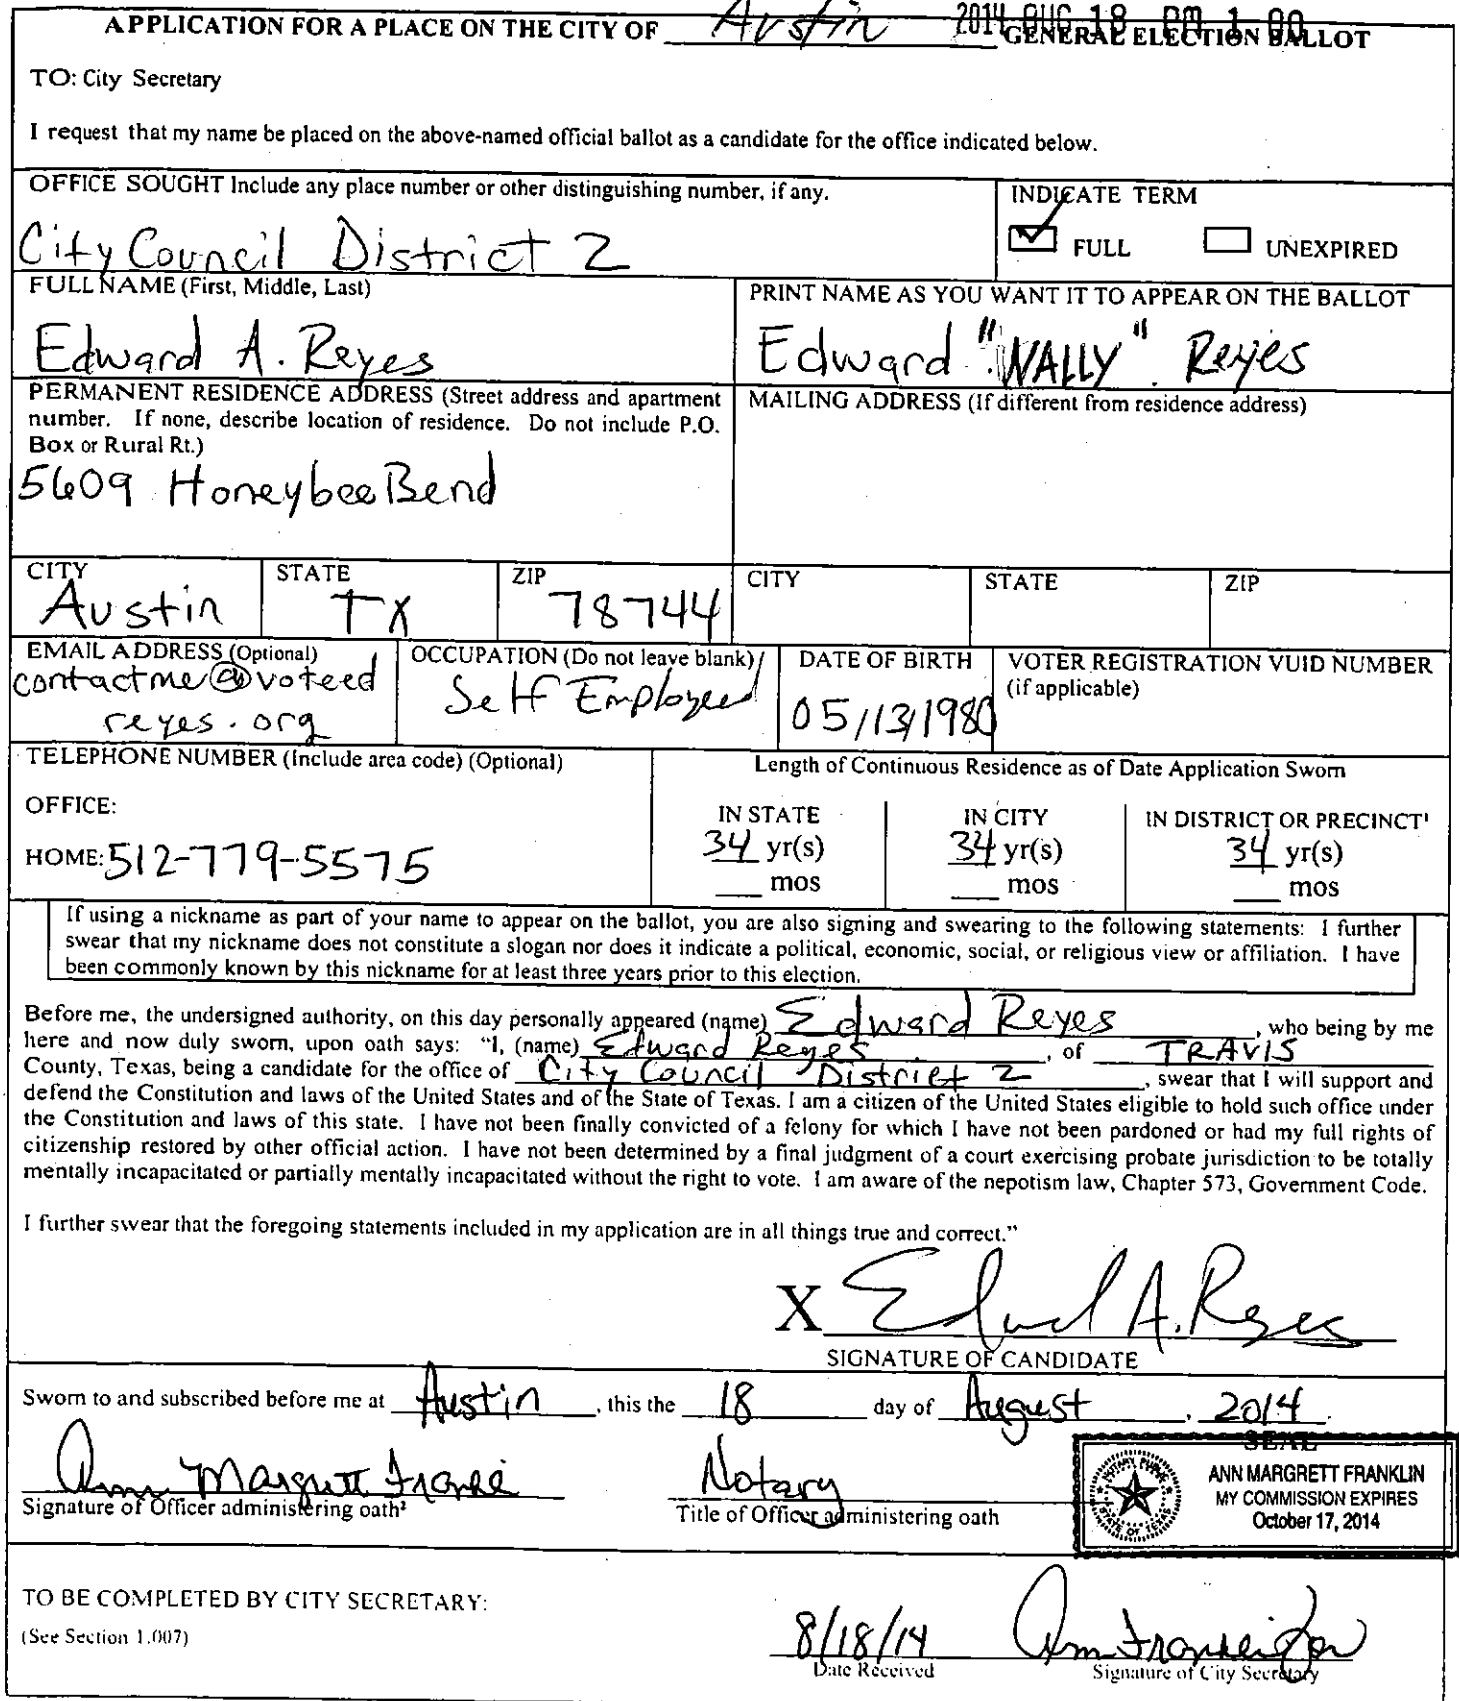 APPLICATION FOR A PLACE ON THE CITY OF Austin GENERAL ELECTION BALLOT
2014 AUG 18 PM 1 00
TO: City Secretary
I request that my name be placed on the above-named official ballot as a candidate for the office indicated below.
OFFICE SOUGHT Include any place number or other distinguishing number, if any.
City Council District 2
INDICATE TERM
FULL UNEXPIRED
FULL NAME (First, Middle, Last)
Edward A. Reyes
PRINT NAME AS YOU WANT IT TO APPEAR ON THE BALLOT
Edward "WALLY" Reyes
PERMANENT RESIDENCE ADDRESS (Street address and apartment
number. If none, describe location of residence. Do not include P.O.
Box or Rural Rt.)
5609 Honeybee Bend
MAILING ADDRESS (If different from residence address)
CITY STATE ZIP CITY STATE ZIP
Austin TX 78744
EMAIL ADDRESS (Optional)
contactme@voteed
reyes.org
OCCUPATION (Do not leave blank)
Self Employed
DATE OF BIRTH
05/13/1980
VOTER REGISTRATION VUID NUMBER
(if applicable)
TELEPHONE NUMBER (Include area code) (Optional)
OFFICE:
HOME: 512-779-5575
Length of Continuous Residence as of Date Application Sworn
IN STATE IN CITY IN DISTRICT OR PRECINCT¹
34 yr(s) 34 yr(s) 34 yr(s)
___ mos ___ mos ___ mos
If using a nickname as part of your name to appear on the ballot, you are also signing and swearing to the following statements: I further
swear that my nickname does not constitute a slogan nor does it indicate a political, economic, social, or religious view or affiliation. I have
been commonly known by this nickname for at least three years prior to this election.
Before me, the undersigned authority, on this day personally appeared (name) Edward Reyes, who being by me
here and now duly sworn, upon oath says: "I, (name) Edward Reyes, of TRAVIS
County, Texas, being a candidate for the office of City Council District 2, swear that I will support and
defend the Constitution and laws of the United States and of the State of Texas. I am a citizen of the United States eligible to hold such office under
the Constitution and laws of this state. I have not been finally convicted of a felony for which I have not been pardoned or had my full rights of
citizenship restored by other official action. I have not been determined by a final judgment of a court exercising probate jurisdiction to be totally
mentally incapacitated or partially mentally incapacitated without the right to vote. I am aware of the nepotism law, Chapter 573, Government Code.
I further swear that the foregoing statements included in my application are in all things true and correct."
X Edward A. Reyes
SIGNATURE OF CANDIDATE
Sworn to and subscribed before me at Austin, this the 18 day of August, 2014.
SEAL
Ann Margrett Franklin
Signature of Officer administering oath²
Notary
Title of Officer administering oath
NOTARY PUBLIC
STATE OF TEXAS
ANN MARGRETT FRANKLIN
MY COMMISSION EXPIRES
October 17, 2014
TO BE COMPLETED BY CITY SECRETARY:
(See Section 1.007)
8/18/14
Date Received
Ann Franklin for
Signature of City Secretary